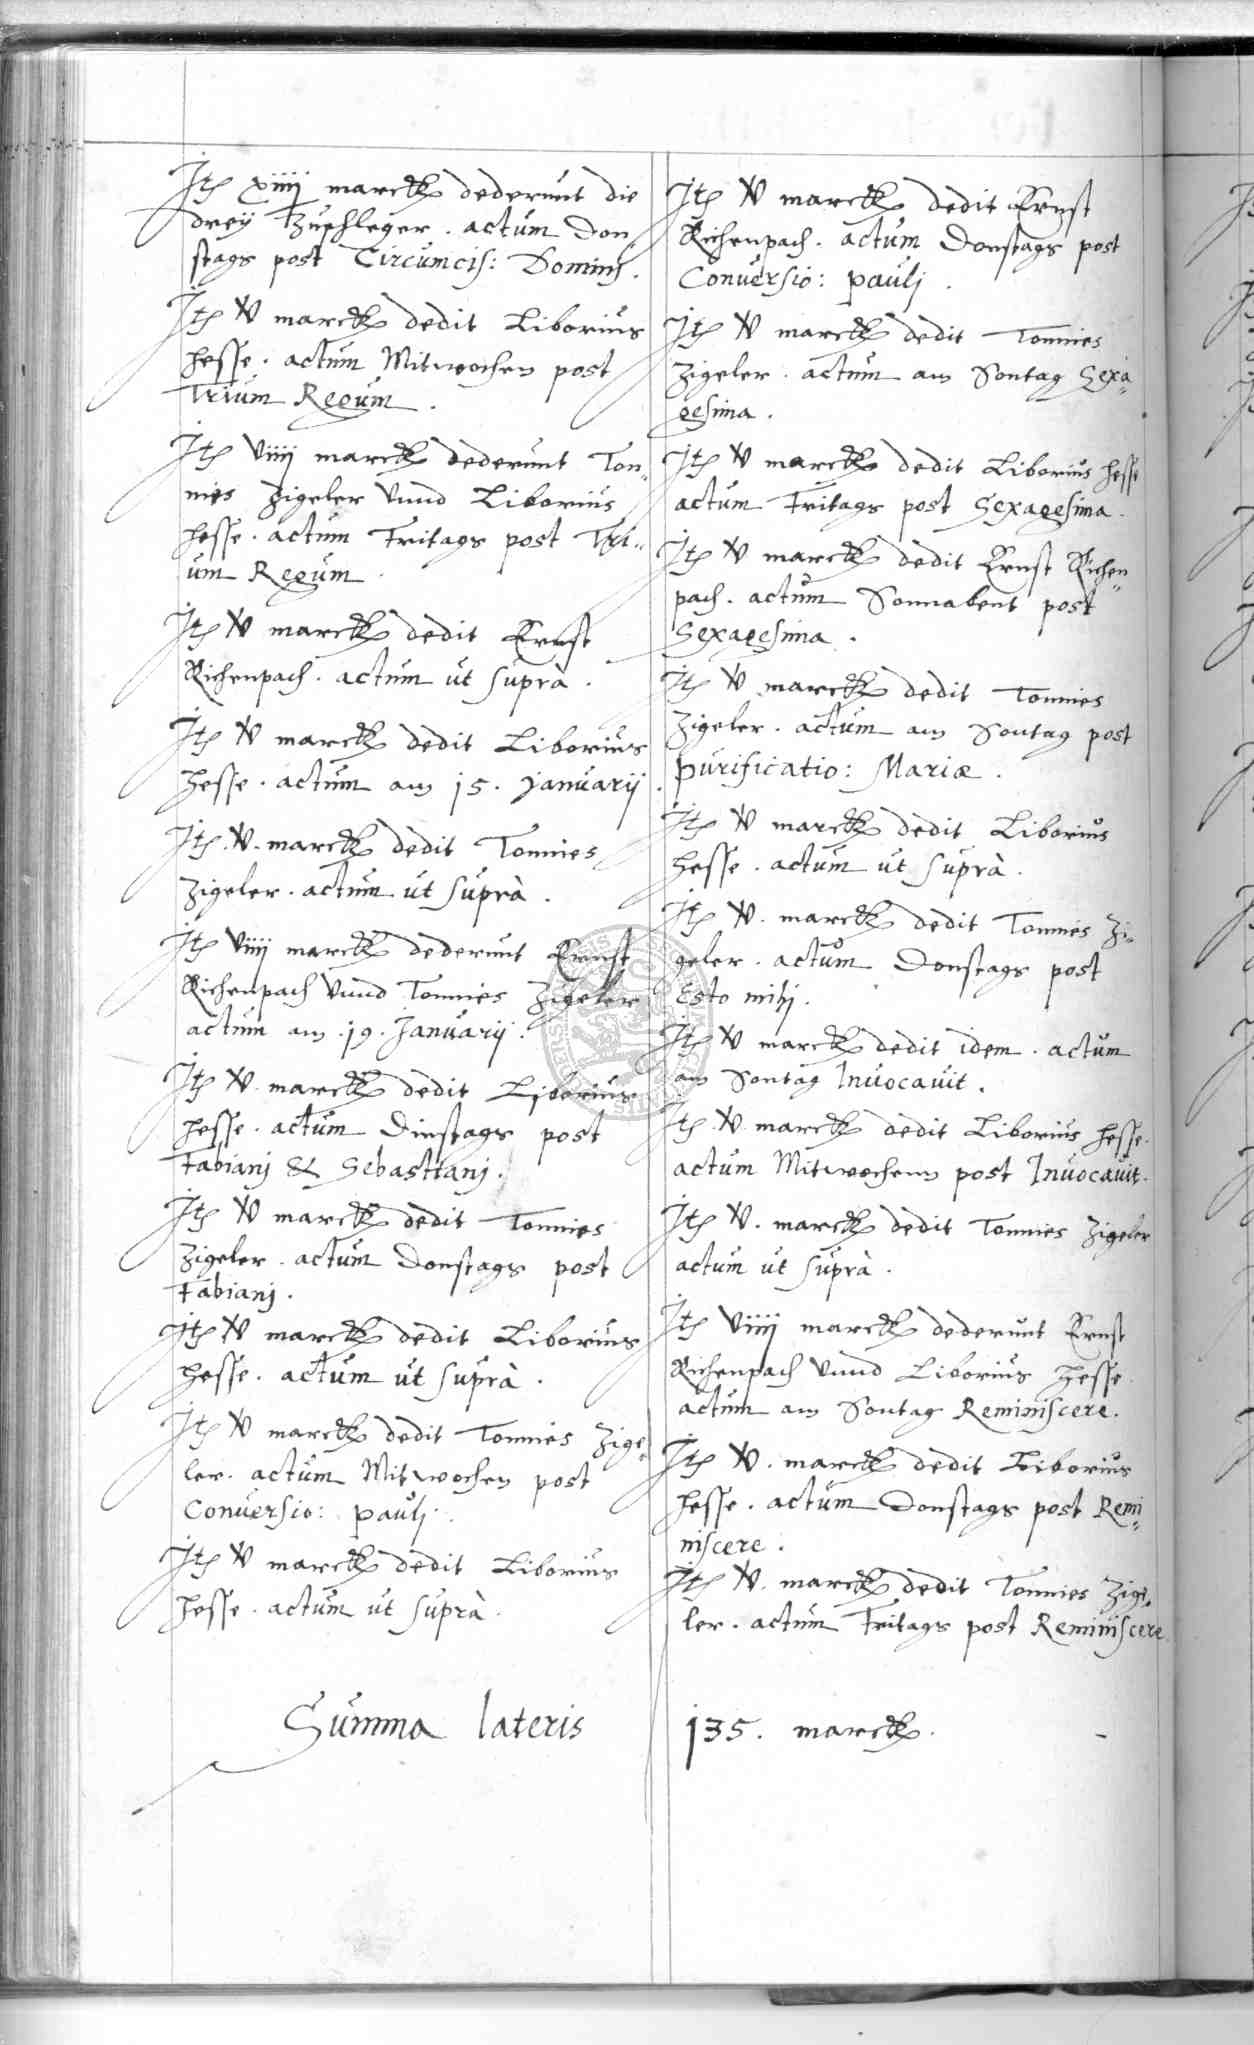 Itē xiiij marck dederunt die
drey Zuschleger . actum Don„
stags post Circumcis: Domini .
Itē v̶ marck dedit Liborius
Hesse . actum Mitwochen post
Trium Regum .
Itē viiij marck dederunt Ton„
nies Zigeler vnnd Liborius
Hesse . actum Fritags post Tri„
um Regum
Itē v̶ marck dedit Ernst
Richenpach . actum ut suprà .
Itē v̶ marck dedit Liborius
Hesse . actum am 15. Januarij .
Itē v̶ . marck dedit Tonnies
Zigeler . actum ut suprà .
Itē viiij marck dederunt Ernst
Richenpach vnnd Tonnies Zigeler
actum am .19. Januarij .
Itē v̶ marck dedit Liborius
Hesse . actum Dinstags post
Fabianj & Sebastianj .
Itē v̶ marck dedit Tonnies
Zigeler . actum Donstags post
Fabianj .
Itē v̶ marck dedit Liborius
Hesse . actum ut suprà .
Itē v̶ marck dedit Tonnies Zige„
ler . actum Mitwochen post
Conversio: Paulj .
Itē v̶ marck dedit Liborius
Hesse . actum ut suprà .
Itē v̶ marck dedit Ernst
Richenpach . actum Donstags post
Conversio: Paulj .
Itē v̶ marck dedit Tonnies
Zigeler . actum am Sontag Sexa„
gesima .
Itē v̶ marck dedit Liborius Hesse
actum Fritags post Sexagesima .
Itē v̶ marck dedit Ernst Richen„
pach . actum Sonnabent post
Sexagesima .
Itē v̶ marck dedit Tonnies
Zigeler . actum am Sontag post
Purificatio: Mariæ .
Itē v̶ marck dedit Liborius
Hesse . actum ut suprà .
Itē v̶ . marck dedit Tonnies Zi„
geler . actum Donstags post
Esto mihj .
Itē v̶ marck dedit idem . actum
am Sontag Invocavit .
Itē v̶ marck dedit Liborius Hesse .
actum Mitwochenn post Invocavit .
Itē v̶ . marck dedit Tonnies Zigeler
actum ut suprà .
Itē viiij marck dederunt Ernst
Richenpach vnnd Liborius Hesse .
actum am Sontag Reminiscere .
Itē v̶ . marck dedit Liborius
Hesse . actum Donstags post Remi„
niscere .
Itē v̶ . marck dedit Tonnies Zige„
ler . actum Fritags post Reminiscere
Summa lateris 135 . marck .